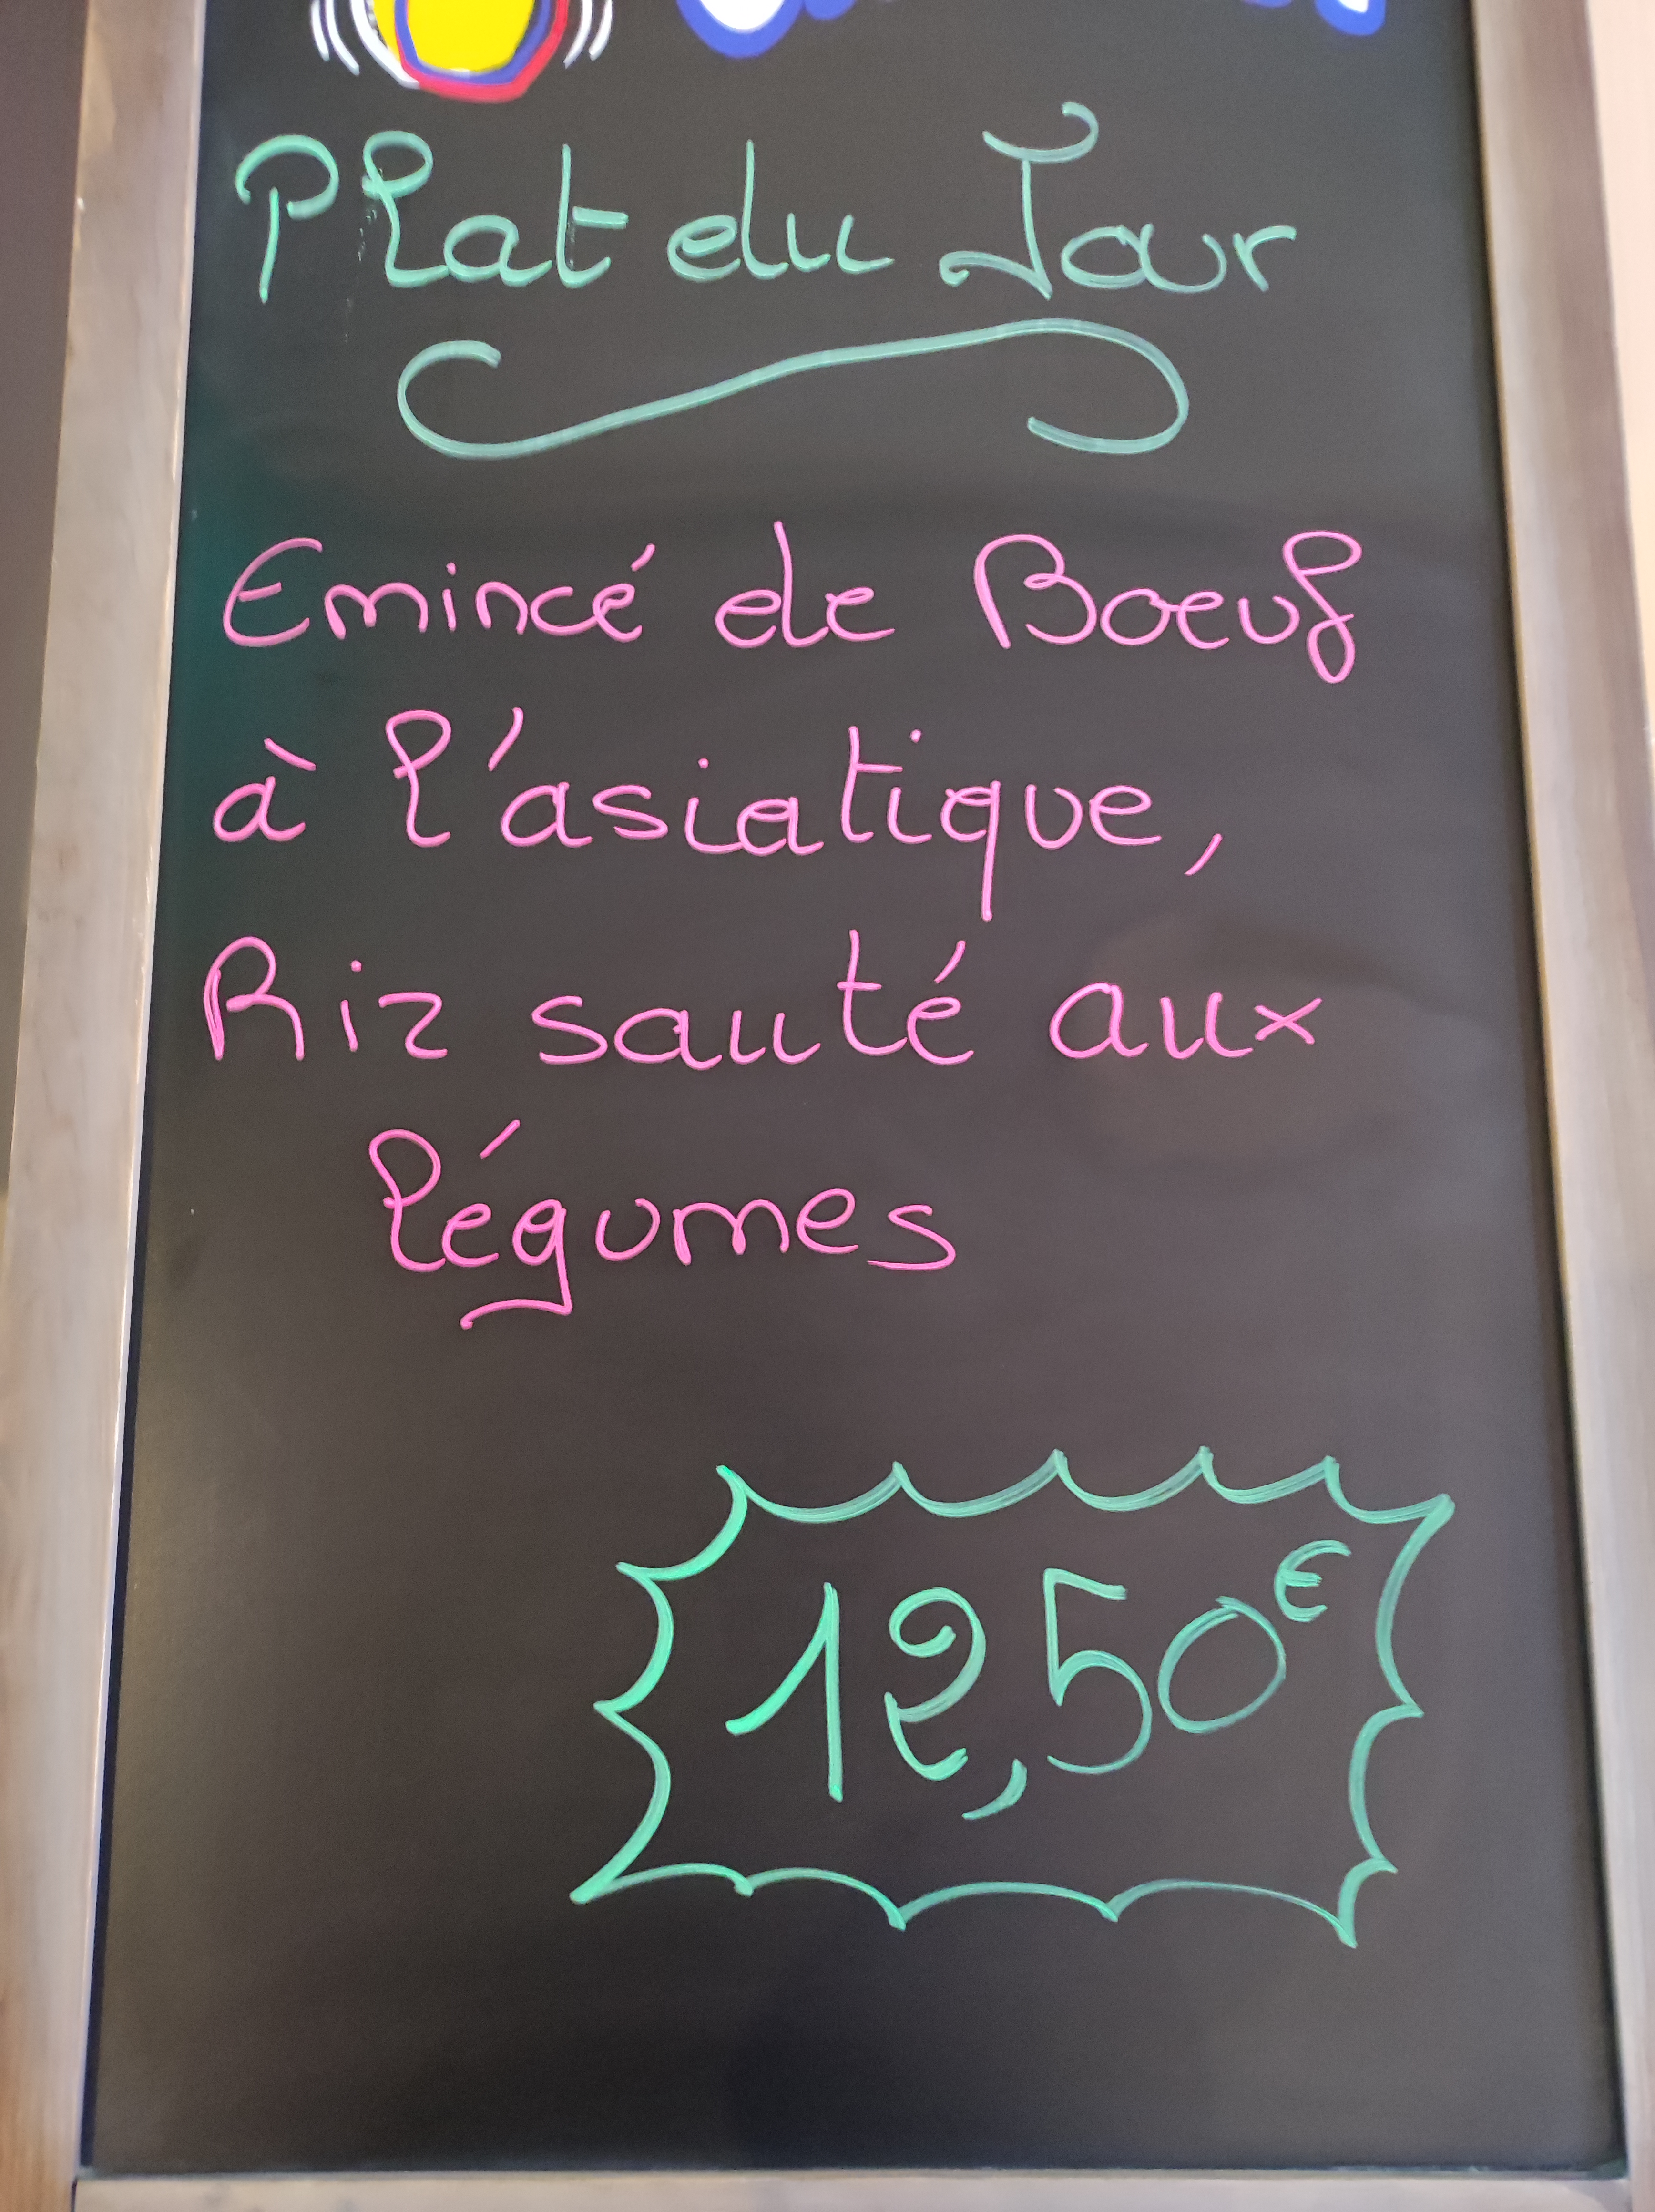 Plat du Jour
Emincé de Boeuf
à l'asiatique,
Riz sauté aux
légumes
12,50€